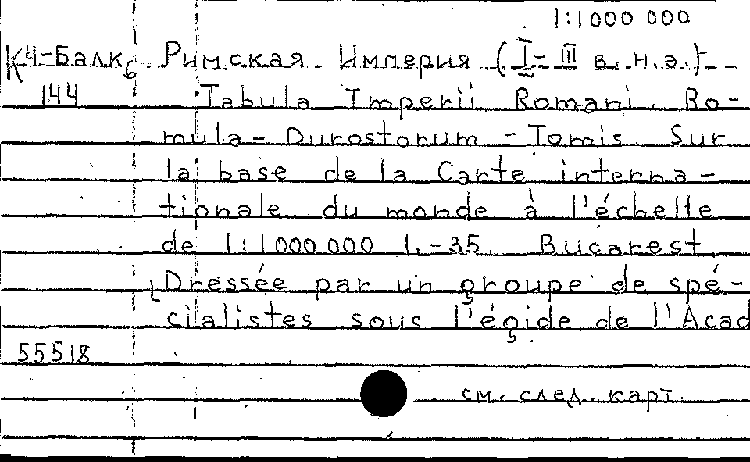 1:1000 000
К4-Балк. Римская Империя (I-III в. н.э.)
144 Tabula Imperii Romani. Ro-
mula - Durostorum - Tomis Sur
la base de la Carte interna-
tionale du monde à l'échelle
de 1:1000000 L-35 Bucarest
[Dressée par un groupe de spé-
cialistes sous l'égide de l'Acad
55518
см. след. карт.